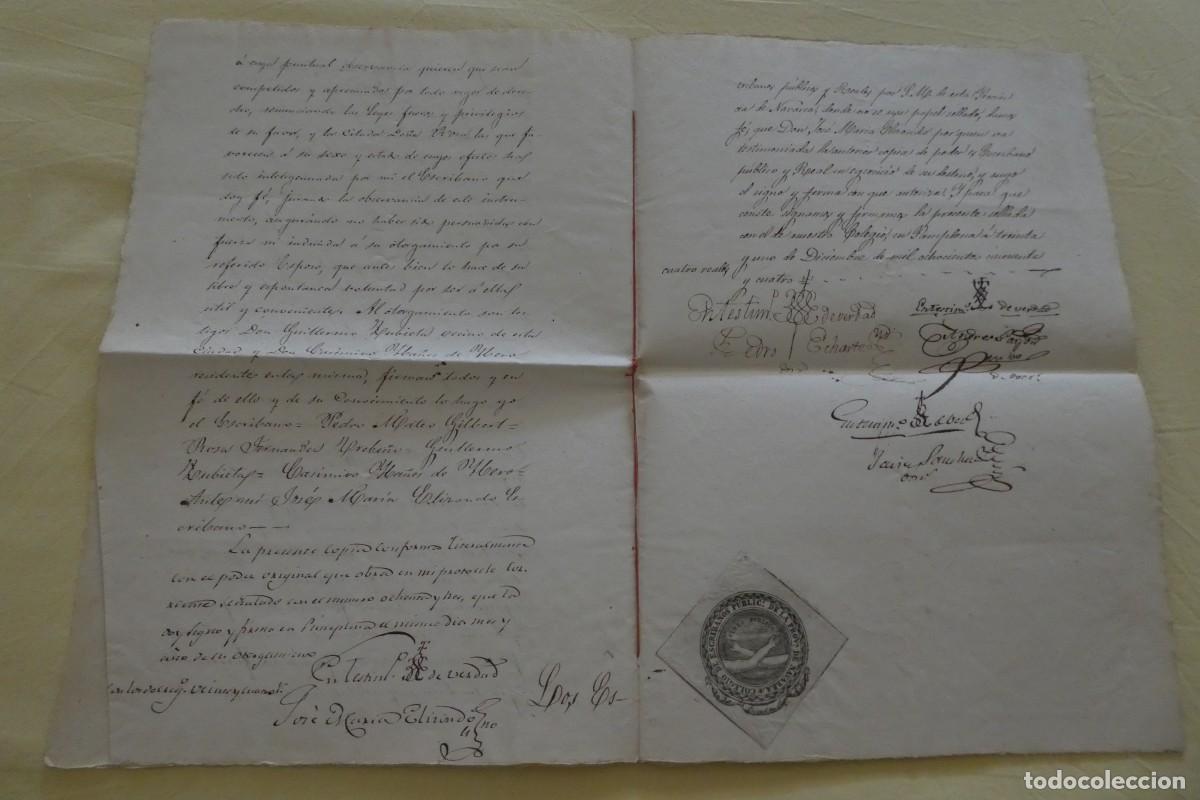 á cuya puntual observancia quieren que sean
competidos y apremiados por todo rigor de dere-
cho, renunciando las Leyes fueros y privilegios
de su favor, y la citada Doña Rosa las que fa-
vorecen á su sexo y estado de cuyos efectos has
sido inteligenciada por mi el Escribano que
doy fé, juran la observancia de este instru-
mento, asegurando no haber sido persuadida con
fuerza ni inducida á su otorgamiento por su
referido Esposo, que antes bien lo hace de su
libre y espontanea voluntad por ser á ellos
util y conveniente. Al otorgamiento son tes-
tigos Don Guillermo Rubieta vecino de esta
Ciudad y Don Casimiro Ybañes de Ybero
residente en la misma, firman todos y en
fé de ello y de su conocimiento lo hago yo
el Escribano= Pedro Mateo Gilbert=
Rosa Fernandez Urbina= Guillermo
Rubieta= Casimiro Ybañes de Ybero=
Ante mi José Maria Elizondo Es-
cribano
La presente copia conforma literalmente
con el poder original que obra en mi protocolo cor-
riente señalado con el numero ochenta y tres, que la
doy signo y firmo en Pamplona el mismo dia mes y
año de su otorgamiento
En testim.º de verdad
José Maria Elizondo Eno
Los Es-
cribanos públicos y Reales por S.M. de esta Provin
cia de Navarra, donde no se usa papel sellado, damos
fé; que Don José Maria Elizondo por quien va
testimoniada la anterior copia de poder es Escribano
público y Real en egercicio de su destino, y suyo
el signo y firma con que autoriza. Y para que
conste signamos y firmamos la presente sellada
con el de nuestro Colegio, en Pamplona á treinta
y uno de Diciembre de mil ochocientos cuarenta
cuatro reales
y cuatro
En testim.º de verdad
Pedro Echarte
En testim.º de verdad
En testim.º de Verd
Javier Sanchez
COLEGIO DE ESCRIBANOS PUBLIC.s DE LA PROV.a DE NAVARRA
todocoleccion